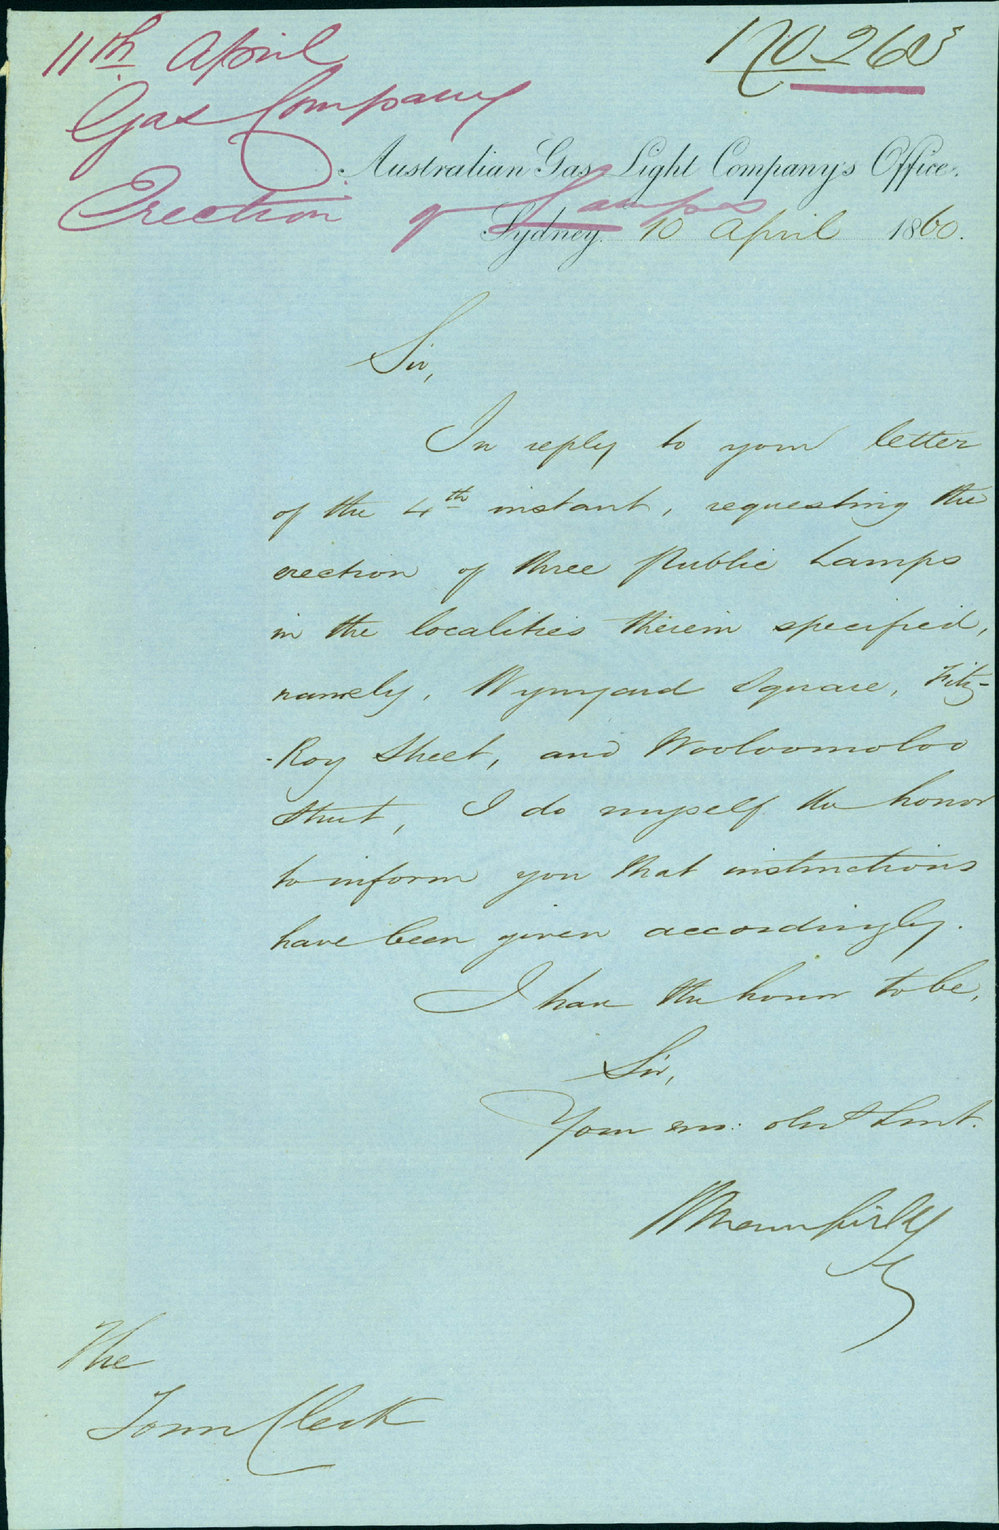 11th April
No 263
Gas Company
Erection of Lamps
Australian Gas Light Company's Office.
Sydney. 10 April 1860.
Sir,
In reply to your letter
of the 4th instant, requesting the
erection of three Public Lamps
in the localities therein specified,
namely, Wynyard Square, Fitz-
-Roy Street, and Wooloomoloo
Street, I do myself the honor
to inform you that instructions
have been given accordingly.
I have the honor to be,
Sir,
Your mo: obdt Servt.
The
Town Clerk